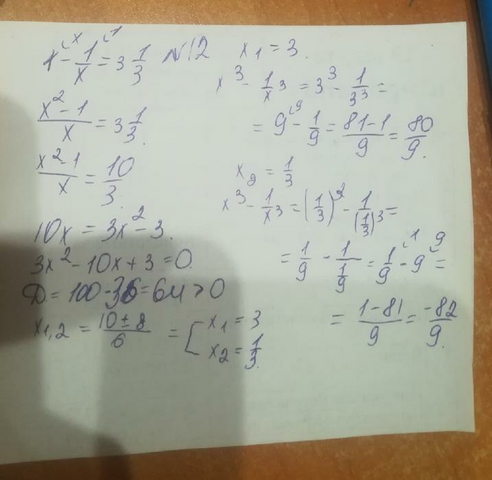 x - 1/x = 3 1/3 N12
(x² - 1)/x = 3 1/3
(x² - 1)/x = 10/3
10x = 3x² - 3.
3x² - 10x + 3 = 0.
D = 100 - 36 = 64 > 0
x₁,₂ = (10 ± 8)/6 = [ x₁ = 3
x₂ = 1/3
x₁ = 3.
x³ - 1/x³ = 3³ - 1/3³ =
= 9 - 1/9 = (81-1)/9 = 80/9.
x₂ = 1/3
x³ - 1/x³ = (1/3)² - 1/(1/3)³ =
= 1/9 - 1/(1/9) = 1/9 - 9 =
= (1-81)/9 = -82/9.